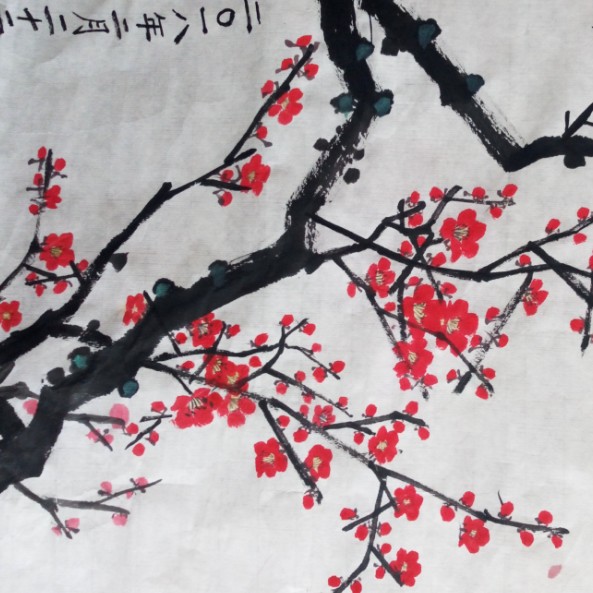 二〇一八年二月二十